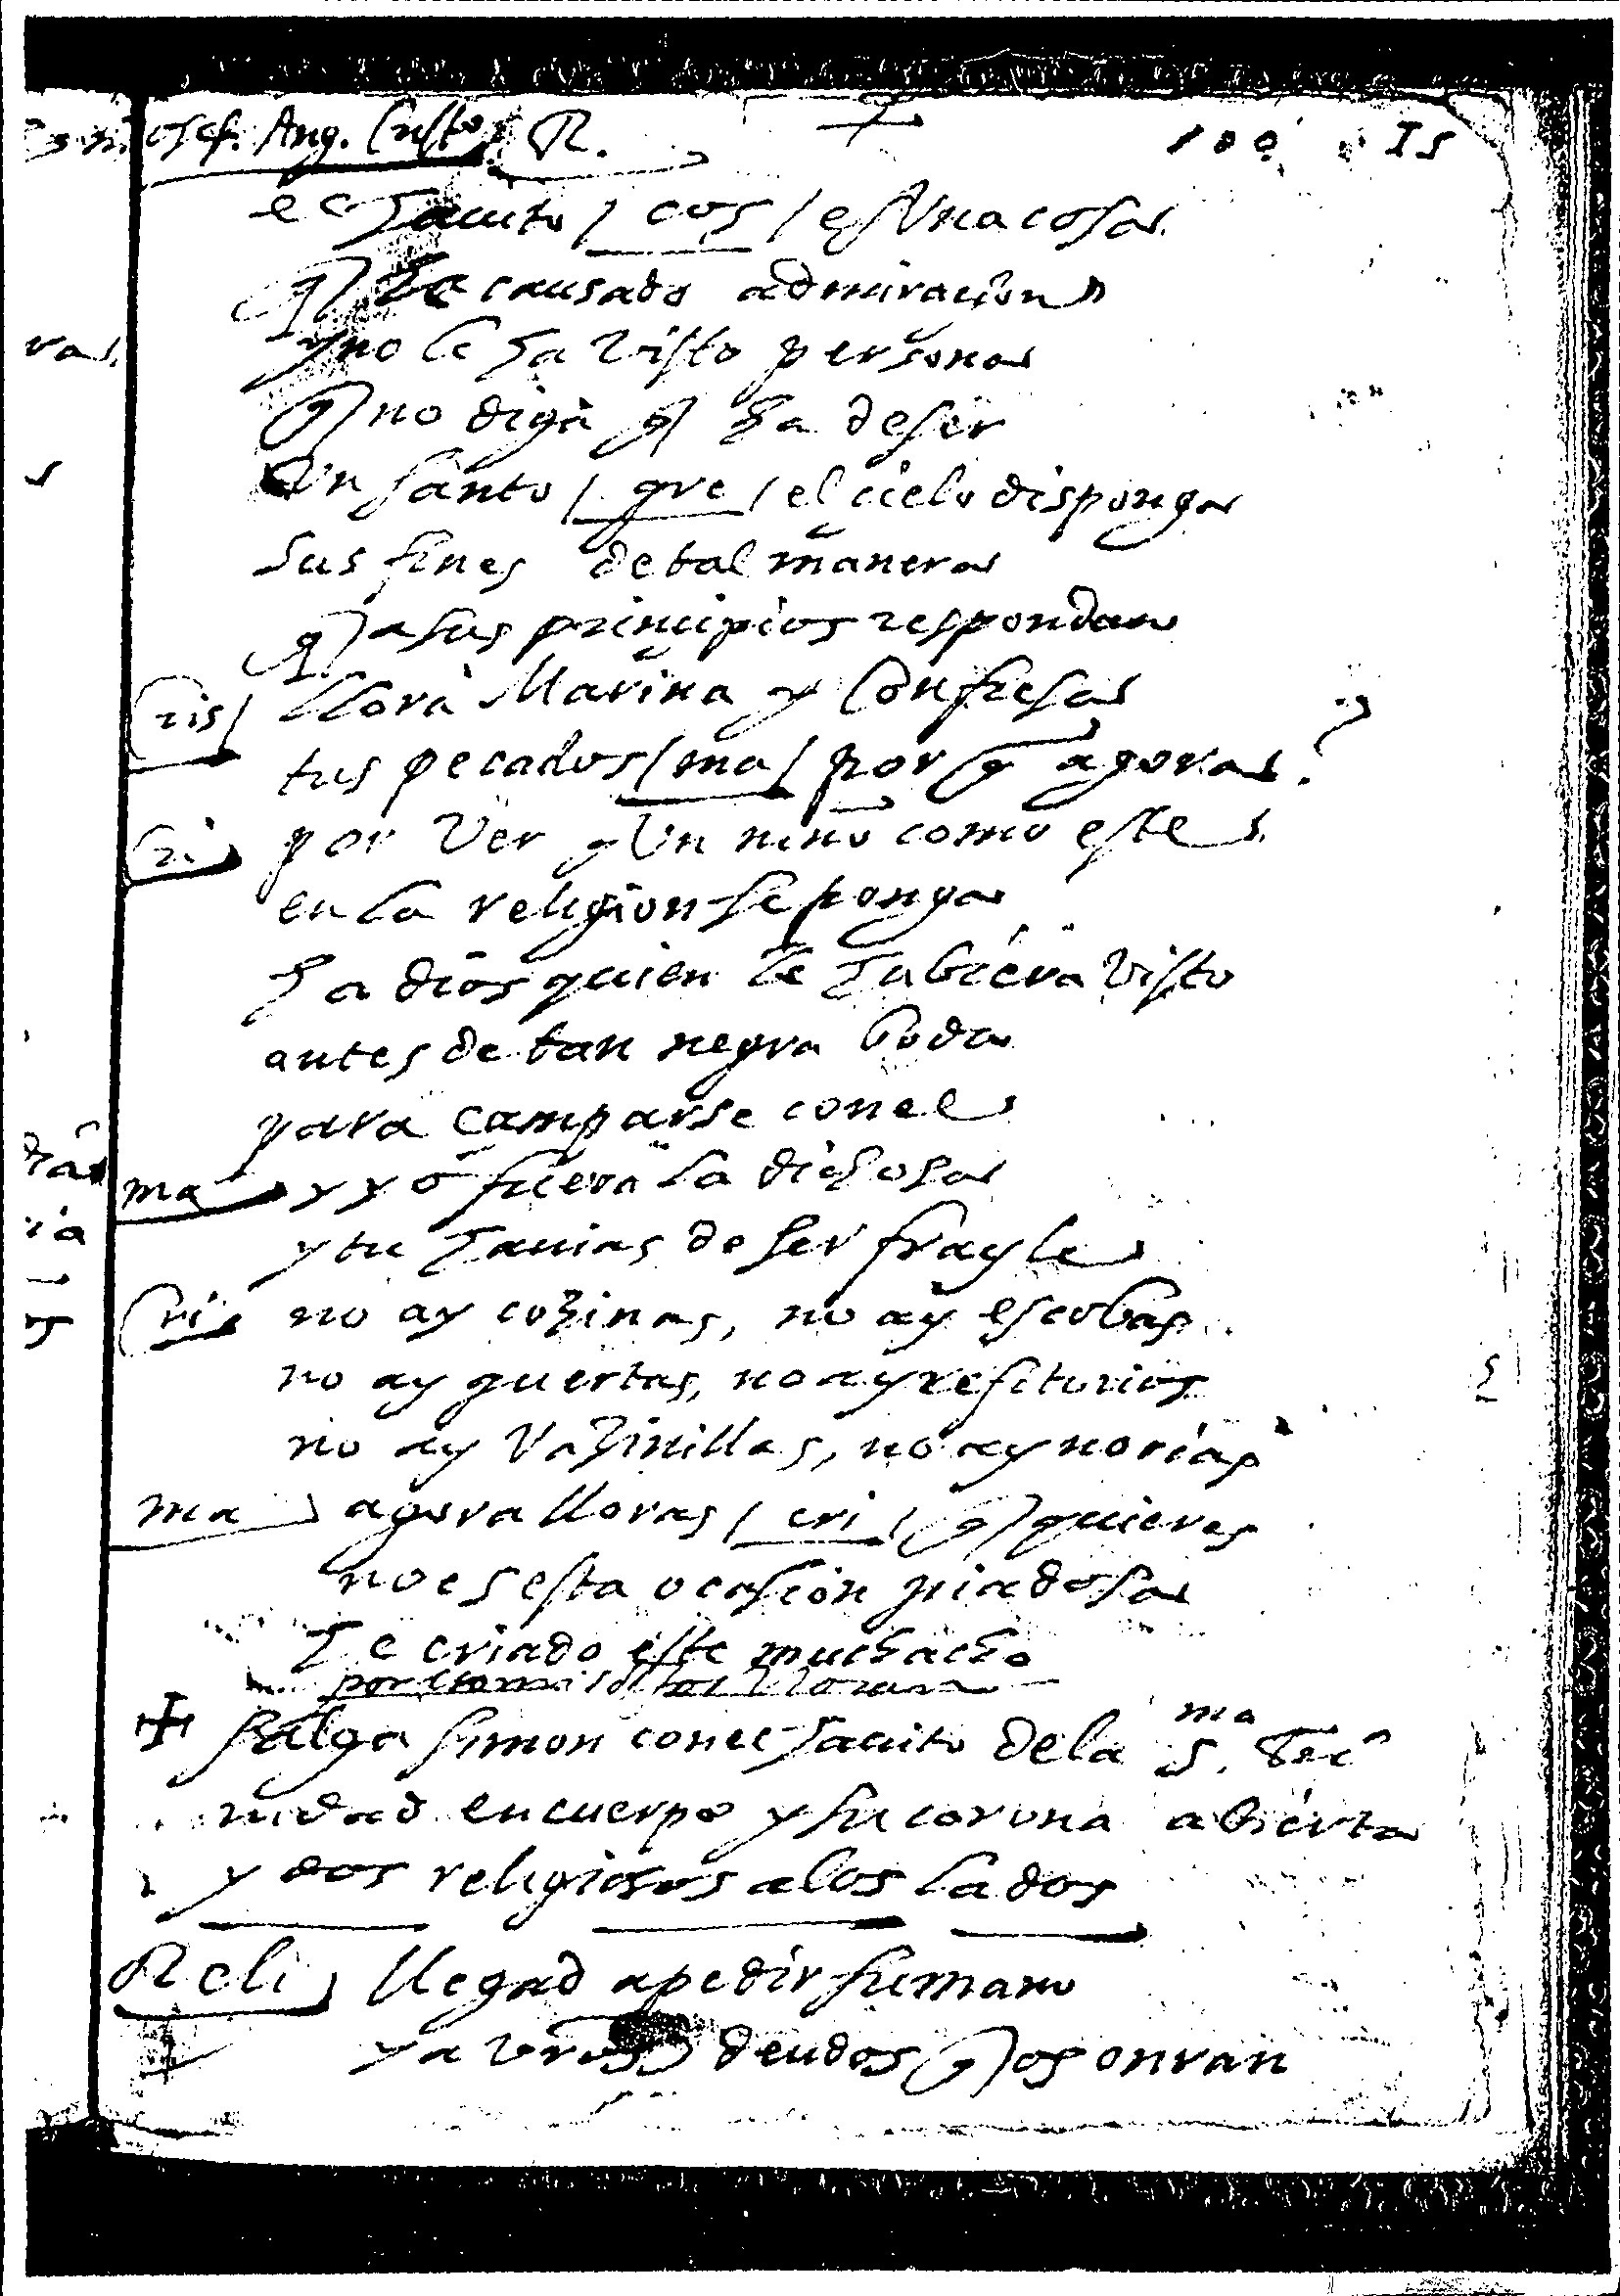 Josef. Ang. Custo. R. 100 15
el Jauito / cos / es Vna cosa
q he causado admiracion
y no le ha visto persona
q no diga q ha de ser
Vn santo / gre / el cielo disponga
sus fines de tal manera
q a sus principios respondan
Cris / llora Marina y Confiesa
tus pecados / ma / por q agora?
Cri por Ver q Un niño como este
en la religion se ponga
ha dios quien le hubiera visto
antes de tan negra boda
para camparse con el
ma y yo fuera la dichosa
y tu hauias de ser frayle
Cri no ay cozinas, no ay escobas
no ay guertas, no ay refitorios
no ay Vazinillas, no ay norias
ma agora lloras / cri / q quieres
no es esta ocasion piadosa
he criado este muchacho
por
salga simon con el hauito de la S.ma Tri
nidad en cuerpo y su corona abierta
y dos religiosos a los lados
Reli llegad a pedir su mano
y a vros deudos q os onran